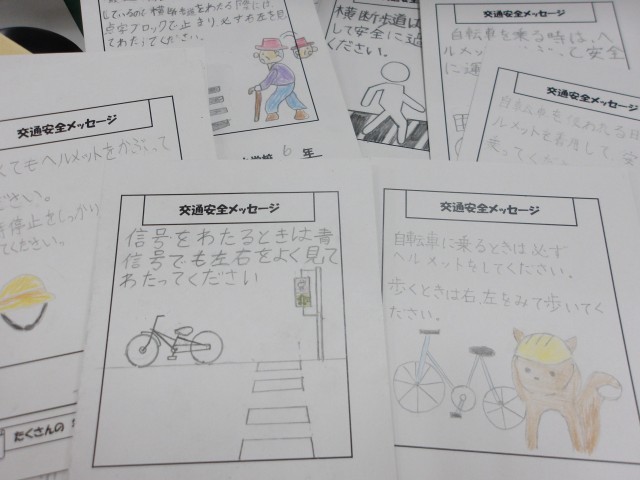 しているので横断歩道をわたる際には
点字ブロックで止まり必ず右左を見
てわたってください。
6年
横断歩道は
して安全に
ください。
交通安全メッセージ
自転車を乗る時は、ヘ
ルメット と安全
に運
交通安全メッセージ
くてもヘルメットをかぶって
ださい。
停止をしっかり
てください。
たくさんの
交通安全メッセージ
ルメットを着用して、安
乗ってくだ
交通安全メッセージ
信号をわたるときは青
信号でも左右をよく見て
わたってください
交通安全メッセージ
自転車に乗るときは必ず
ヘルメットをしてください。
歩くときは右、左をみて歩いてく
ださい。